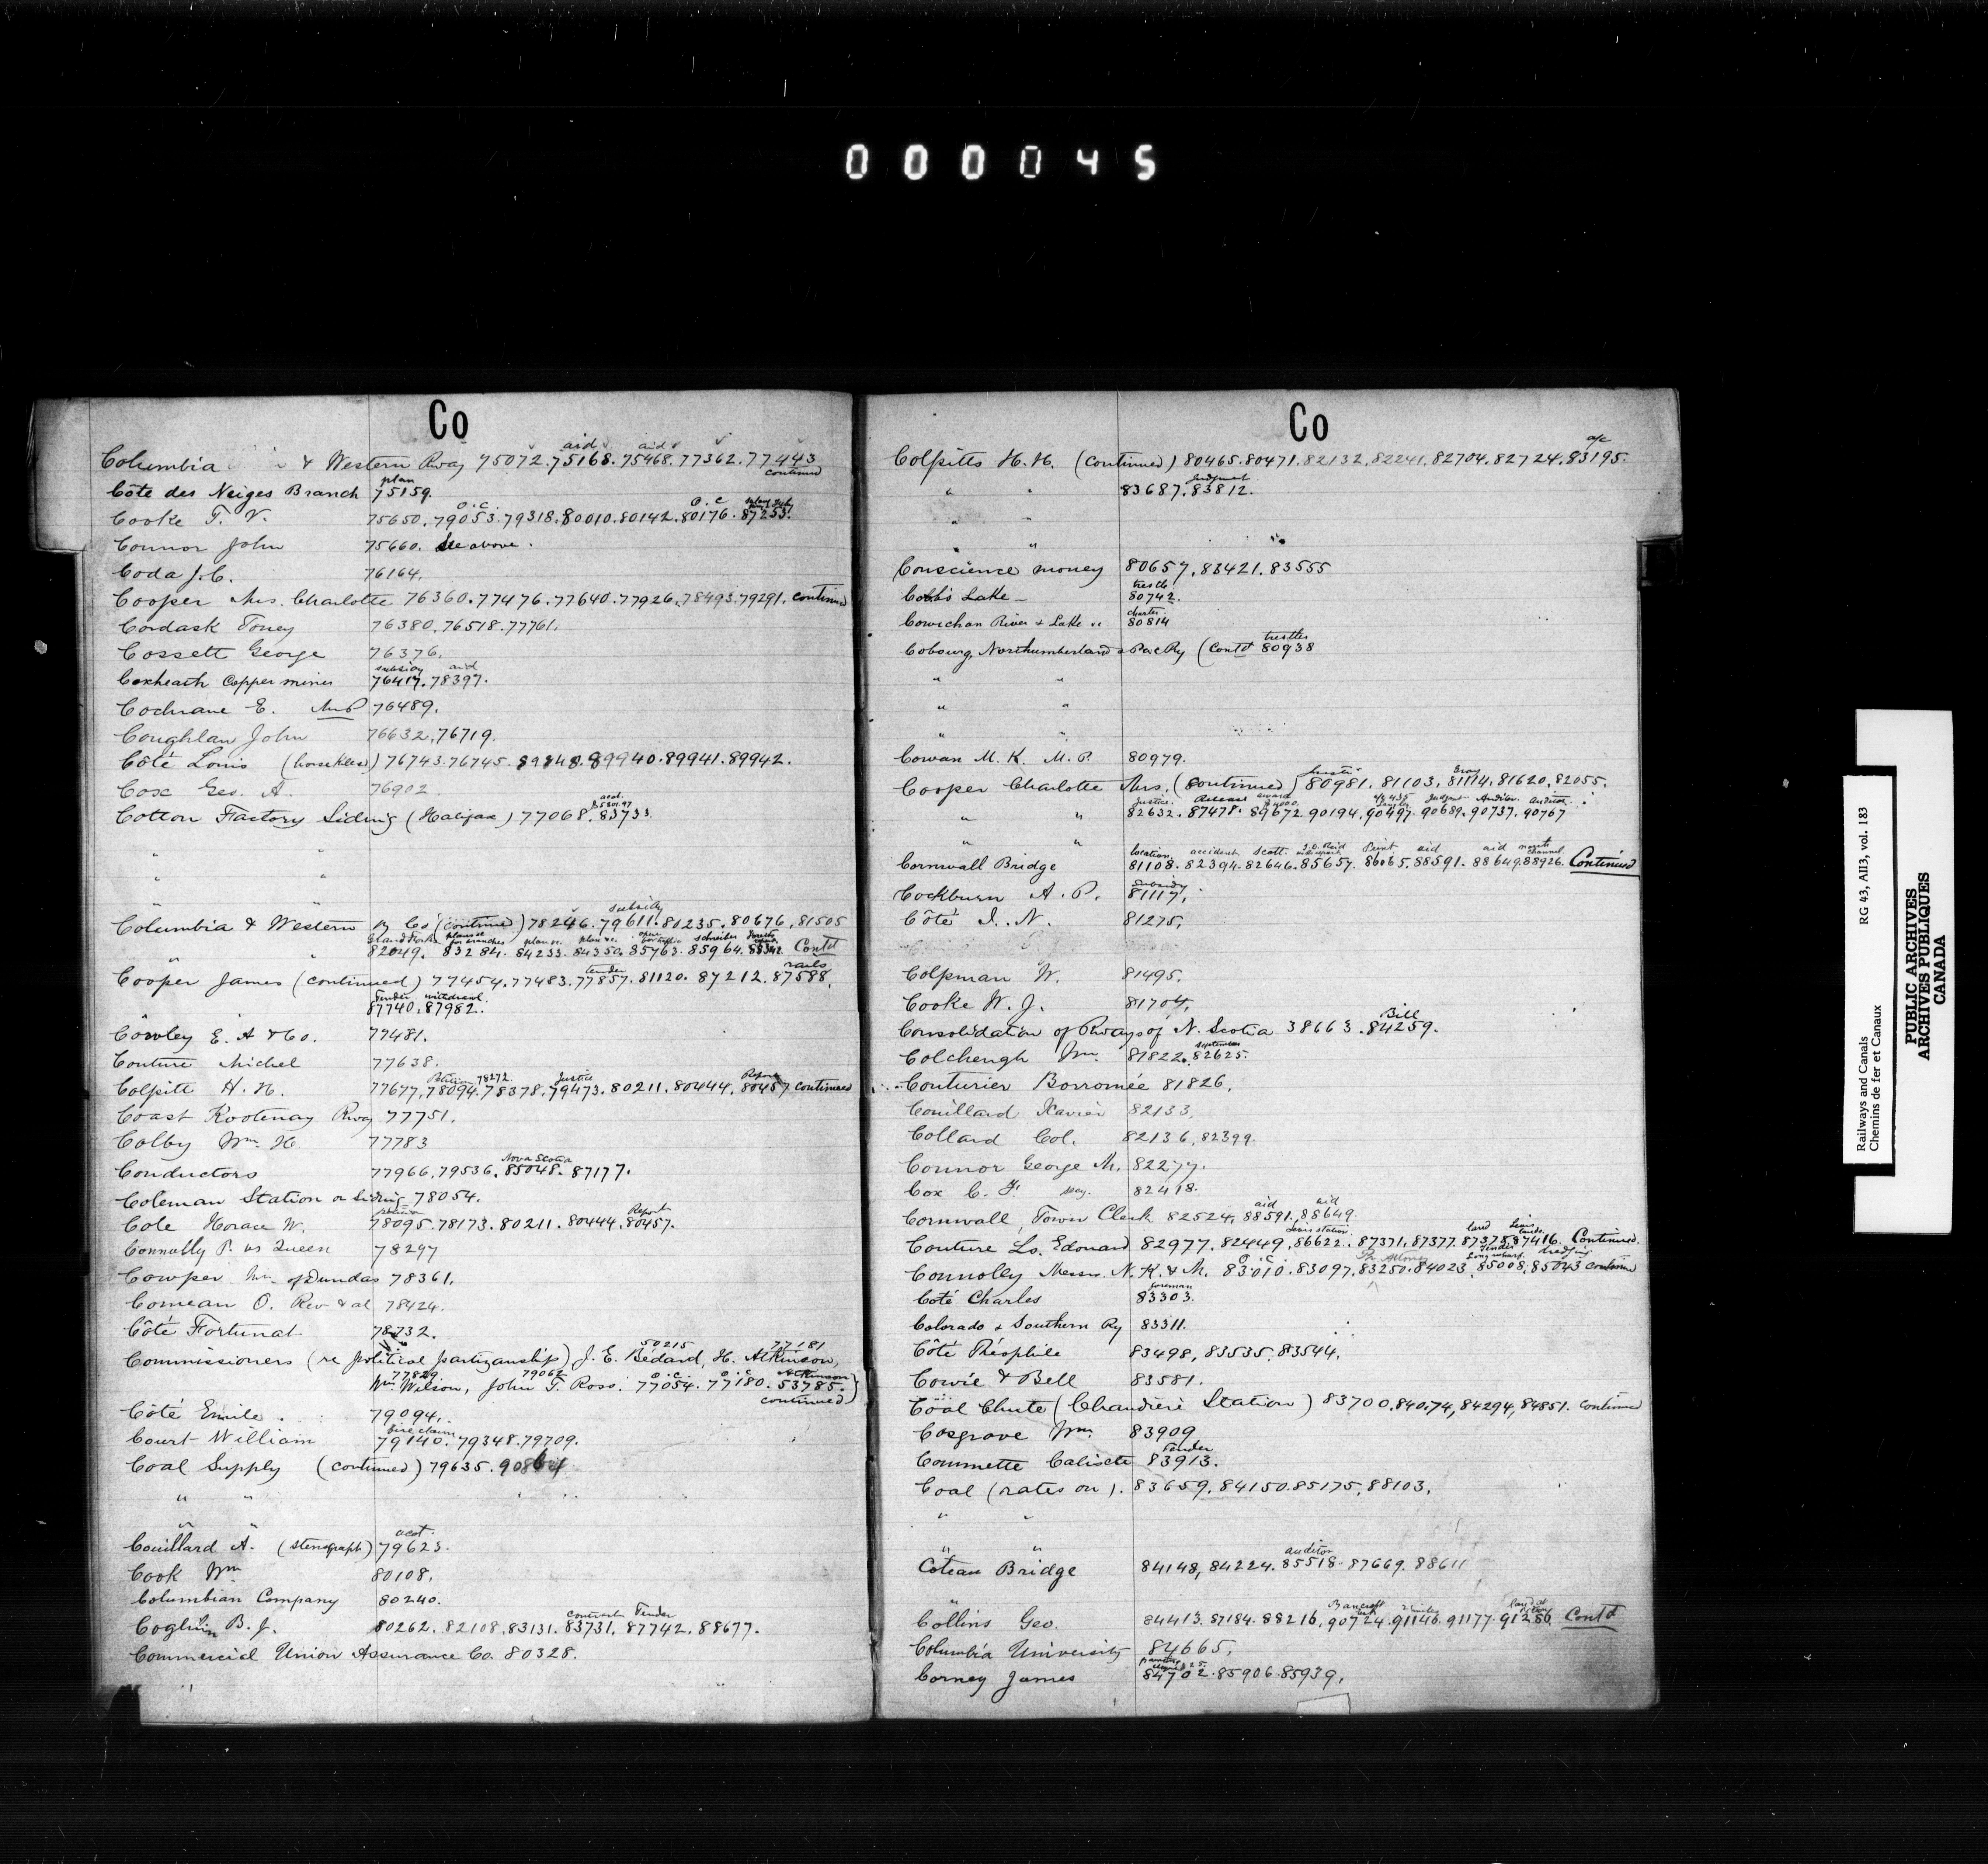 000045
Co
Columbia & Western Rway 75072. 75168. 75468. 77362. 77443
aid aid
continued
plan
Côte des Neiges Branch 75159.
O.C. O.C
Cooke T. V. 75650. 79053. 79318. 80010. 80142. 80176. 87253.
Connor John 75660. See above.
Coda J. C. 76164.
Cooper Mrs. Charlotte 76360. 77476. 77640. 77926. 78493. 79291. continued
Cordask Toney 76380. 76518. 77761.
Cossett George 76376.
subsidy aid
Coxheath Copper mines 76417. 78397.
Cochrane E. M.P. 76489.
Coughlan John 76632. 76719.
Côté Louis 76743. 76745. 89940. 89941. 89942.
Cox Geo. A. 76902
Cotton Factory Siding (Halifax) 77068. 83733.
" "
" "
subsidy
Columbia & Western Ry Co (continued) 78246. 79611. 81235. 80676, 81505
82049. 83284. 84233. 84350. 85763. 85964. 88342. Cont'd
tender rails
Cooper James (continued) 77454. 77483. 77857. 81120. 87212. 87588.
Tender withdrawl.
87740. 87982.
Cowley E. A & Co. 77481.
Couture Michel 77638.
Petition 78272 Justice Report
Colpitt H. H. 77677, 78094. 78378. 79473. 80211. 80444. 80457 continued
Coast Kootenay Rway 77751.
Colby Wm. H. 77783
Nova Scotia
Conductors 77966, 79536. 85048. 87177.
Coleman Station or Siding 78054.
Report
Cole Horace W. 78095. 78173. 80211. 80444. 80457.
Connolly P. vs Queen 78297
Cowper Wm. of Dundas 78361.
Comeau O. Rev & al 78424.
Côté Fortunat 78732.
50215 77181
Commissioners (re political partizanship) J. E. Bédard, H. Atkinson,
77829 79062 O.C. O.C Atkinson
Wm Wilson, John T. Ross. 77054. 77180. 53785.)
continued
Côté Emile. 79094.
fire claim
Court William 79140. 79348. 79709.
Coal Supply (continued) 79635.
" "
" "
acct.
Couillard A. (stenograph) 79623.
Cook Wm 80108.
Columbian Company 80240.
contract Tender
Coghlin B. J. 80262. 82108. 83131. 83731. 87742. 88677.
Commercial Union Assurance Co. 80328.
Co
a/c
Colpitts H. H. (continued) 80465. 80471. 82132. 82241. 82704. 82724. 83195.
Judgment
" " 83687. 83812.
" "
"
Conscience money 80657. 83421. 83555
trestle
Cobb's Lake 80742.
charter.
Cowichan River & Lake 80814
trestles
Cobourg, Northumberland & Pac Ry (Contd 80938
" "
" "
" "
Cowan M. K. M. P. 80979.
Justice Gray
Cooper Charlotte Mrs. (continued) 80981. 81103. 81114. 81620. 82055.
Justice. Release award Judgmt Auditor. Auditor.
" " 82632. 87478. 89672. 90194. 90497. 90689. 90737. 90767
" "
location accident Scott aid aid north channel
Cornwall Bridge 81108. 82394. 82646. 85657. 86065. 88591. 88649. 88926. Continued
subsidy
Cockburn A. P. 81117.
Côté I. N. 81275.
Colpman W. 81495.
Cooke W. J. 81704.
Bill
Consolidation of Rways of N. Scotia 38663. 84259.
September
Colchengh Wm. 81822. 82625.
Couturier Borromée 81826.
Couillard Xavier 82133.
Collard Col. 82136, 82399.
Connor George M. 82277.
Cox C. F. sec. 82418.
aid aid
Cornwall, Town Clerk 82524. 88591. 88649.
Levis station land Levis lands.
Couture Ls. Edouard 82977. 82449. 86622. 87371. 87377. 87378. 87416. Continued.
O.C. Tender
Connolly Messrs. N. K. & M. 83010. 83097. 83250. 84023. 85008. 85043 continued
foreman
Coté Charles 83303.
Colorado & Southern Ry 83311.
Côté Théophile 83498, 83535. 83544.
Cowie & Bell 83581.
Coal Chute (Chaudière Station) 83700. 84074, 84294, 84851. continued
Cosgrove Wm. 83909
Tender
Commette Calixte 83913.
Coal (rates on). 83659. 84150. 85175. 88103.
" "
" "
auditor
Coteau Bridge 84148, 84224. 85518. 87669. 88611
"
Bancroft
Collins Geo. 84413. 87184. 88216, 90724. 91146. 91177. 91286. Cont'd
Columbia University 84665.
Corney James 84702. 85906. 85939.
Railways and Canals RG 43, AII3, vol. 183
Chemins de fer et Canaux
PUBLIC ARCHIVES
ARCHIVES PUBLIQUES
CANADA